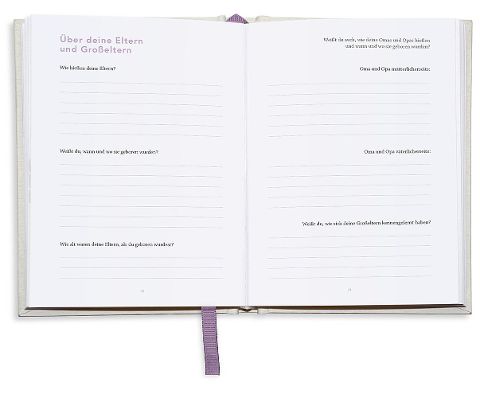 Über deine Eltern
und Großeltern
Wie hießen deine Eltern?
Weißt du, wann und wo sie geboren wurden?
Wie alt waren deine Eltern, als du geboren wurdest?
Weißt du auch, wie deine Omas und Opas hießen
und wann und wo sie geboren wurden?
Oma und Opa mütterlicherseits:
Oma und Opa väterlicherseits:
Weißt du, wie sich deine Großeltern kennengelernt haben?